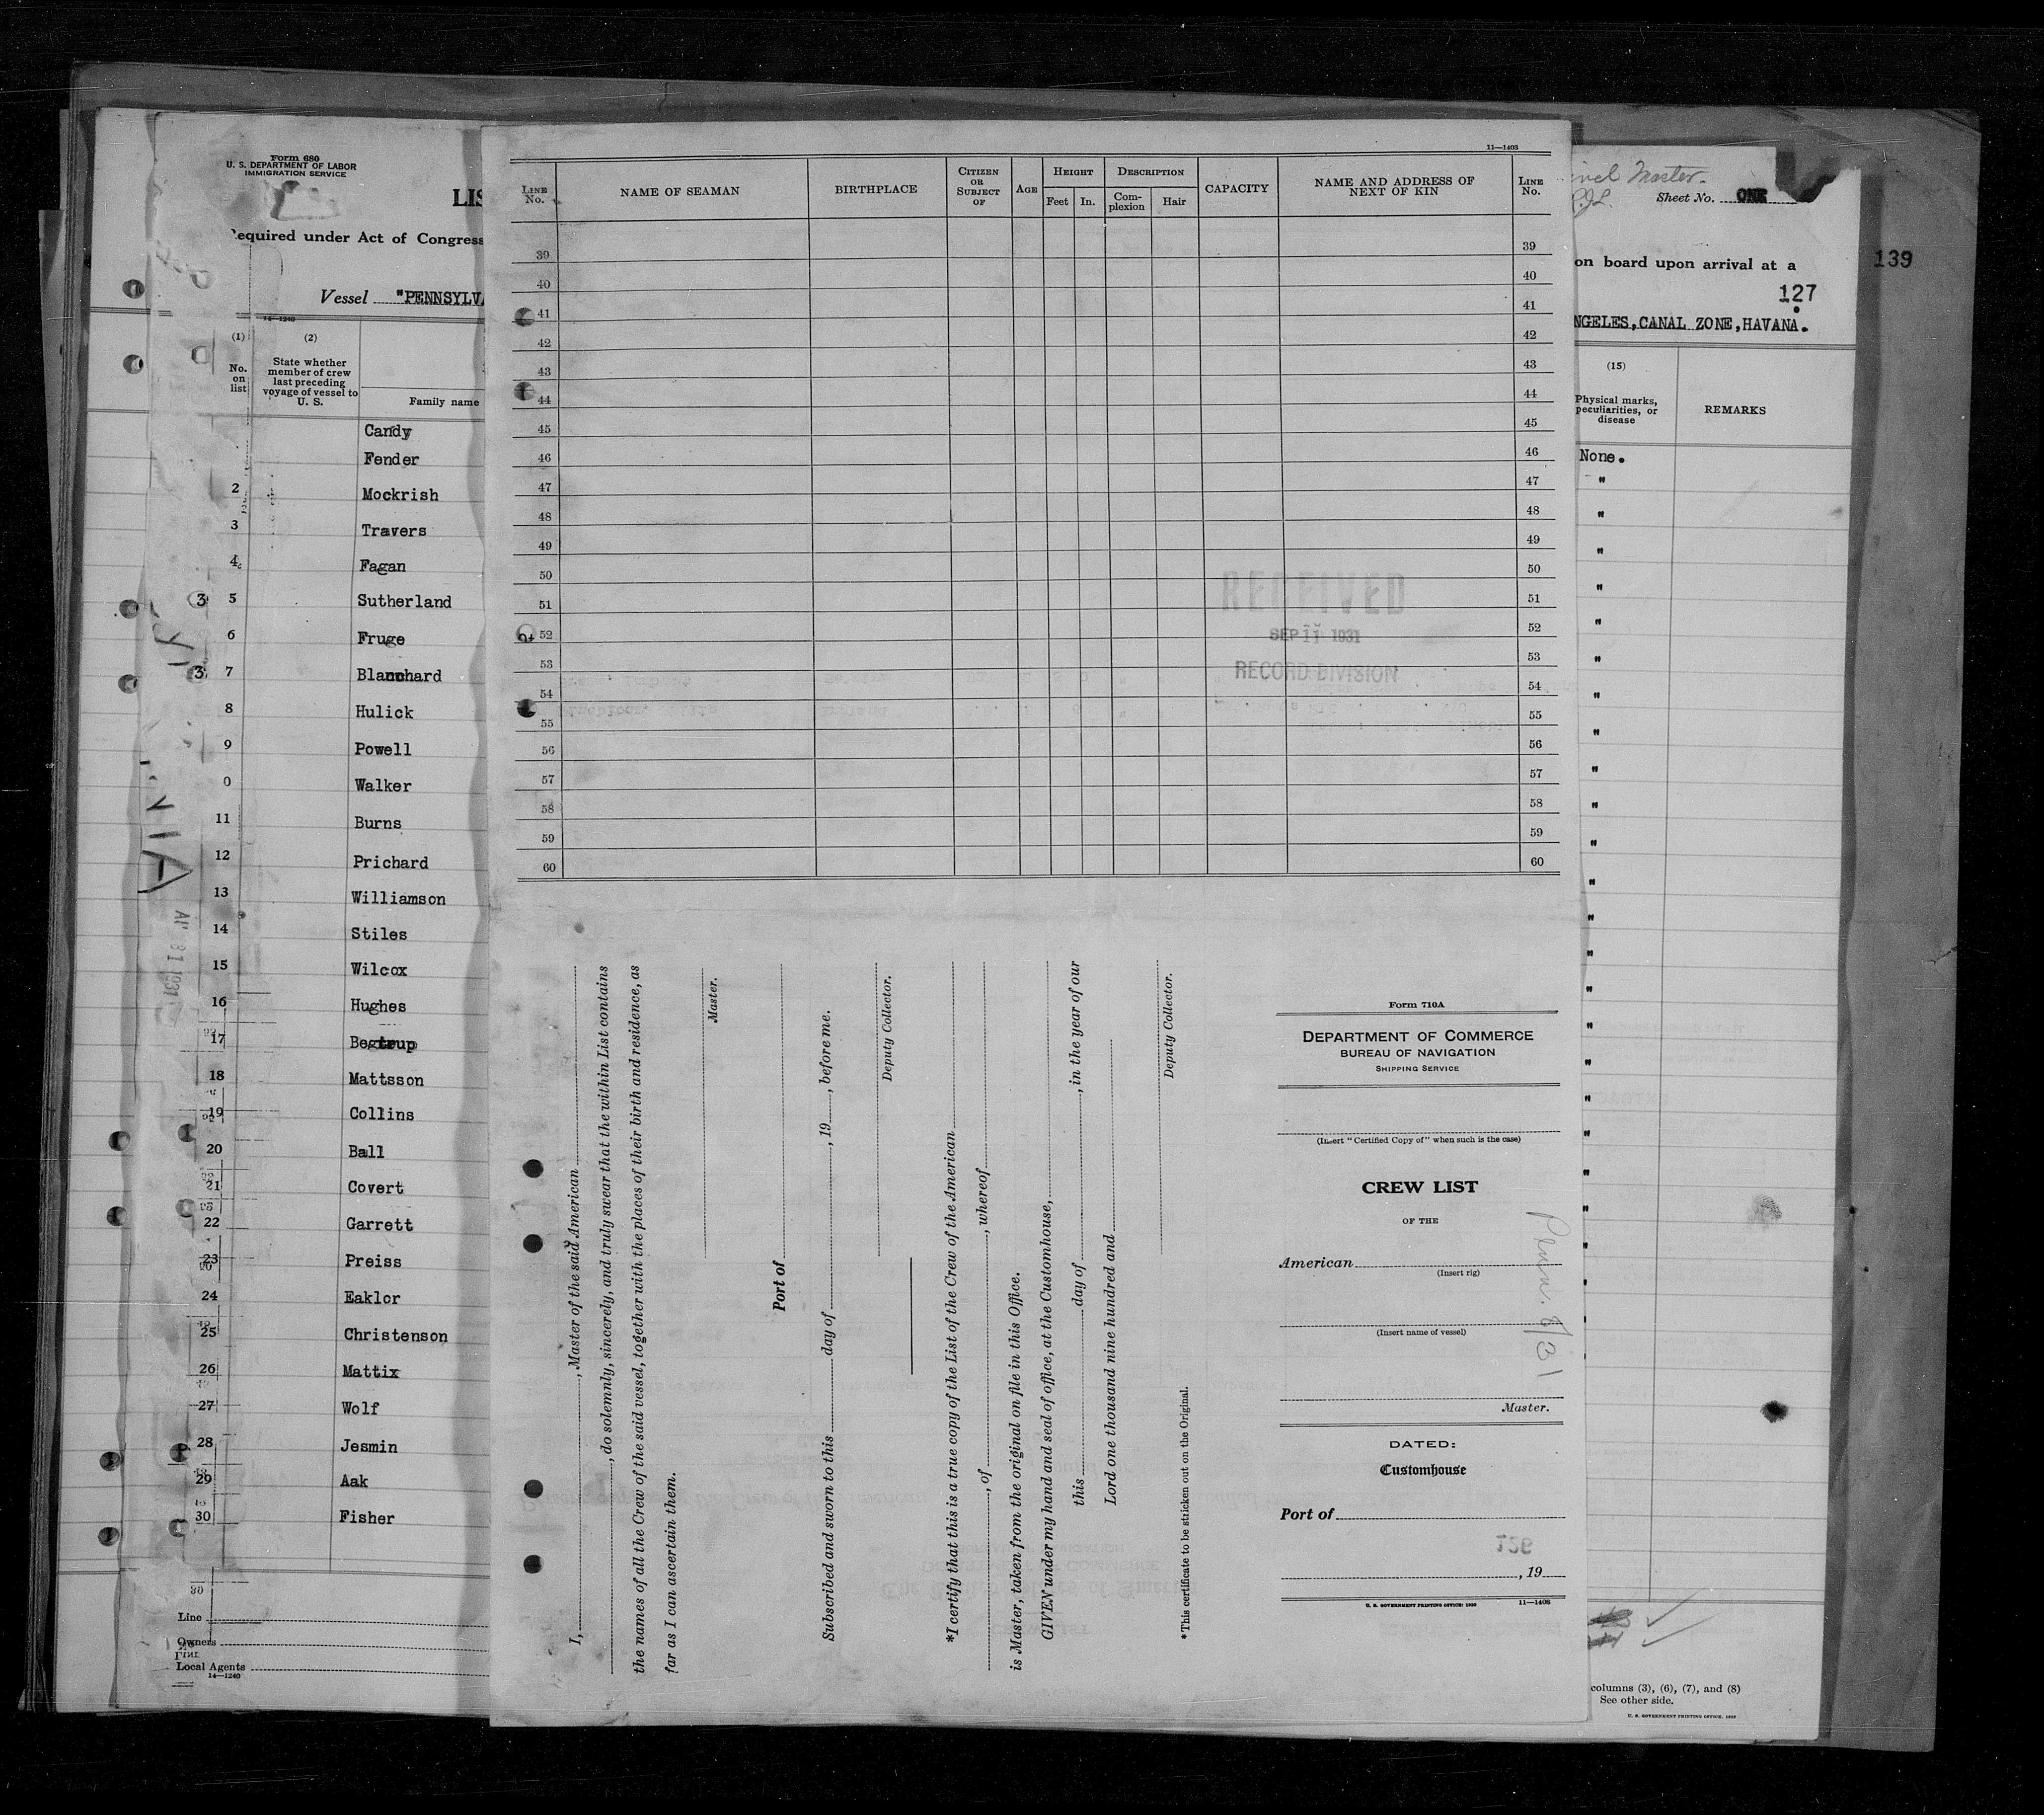 Form 680
U. S. DEPARTMENT OF LABOR
IMMIGRATION SERVICE
LIS
Required under Act of Congress
Vessel "PENNSYLVA
14—1240
(1)
(2)
No. on list
State whether member of crew last preceding voyage of vessel to U. S.
Family name
Candy
Fender
2 Mockrish
3 Travers
4 Fagan
3 5 Sutherland
6 Fruge
3 7 Blanchard
8 Hulick
9 Powell
0 Walker
11 Burns
12 Prichard
13 Williamson
14 Stiles
15 Wilcox
16 Hughes
17 Begtrup
18 Mattsson
19 Collins
20 Ball
21 Covert
22 Garrett
23 Preiss
24 Eaklor
25 Christenson
26 Mattix
27 Wolf
28 Jesmin
29 Aak
30 Fisher
Line
Owners
Local Agents
14—1240
11—1408
LINE No.
NAME OF SEAMAN
BIRTHPLACE
CITIZEN OR SUBJECT OF
AGE
HEIGHT
Feet
In.
DESCRIPTION
Complexion
Hair
CAPACITY
NAME AND ADDRESS OF NEXT OF KIN
LINE No.
39 39
40 40
41 41
42 42
43 43
44 44
45 45
46 46
47 47
48 48
49 49
50 50
51 51
52 52
53 53
54 54
55 55
56 56
57 57
58 58
59 59
60 60
RECEIVED
SEP 11 1931
RECORD DIVISION
I, , Master of the said American
, do solemnly, sincerely, and truly swear that the within List contains
the names of all the Crew of the said vessel, together with the places of their birth and residence, as
far as I can ascertain them.
Master.
Port of
Subscribed and sworn to this day of , 19 , before me.
Deputy Collector.
*I certify that this is a true copy of the List of the Crew of the American
, of , whereof
is Master, taken from the original on file in this Office.
GIVEN under my hand and seal of office, at the Customhouse,
this day of , in the year of our
Lord one thousand nine hundred and
Deputy Collector.
*This certificate to be stricken out on the Original.
Form 710A
DEPARTMENT OF COMMERCE
BUREAU OF NAVIGATION
SHIPPING SERVICE
(Insert "Certified Copy of" when such is the case)
CREW LIST
OF THE
American
(Insert rig)
(Insert name of vessel)
Master.
Penn. 8/31
DATED:
Customhouse
Port of
, 19
U. S. GOVERNMENT PRINTING OFFICE: 1930 11—1408
Master.
Sheet No. ONE
on board upon arrival at a
139
127
NGELES, CANAL ZONE, HAVANA.
(15)
Physical marks, peculiarities, or disease
REMARKS
None.
"
"
"
"
"
"
"
"
"
"
"
"
"
"
"
"
"
"
"
"
"
"
columns (3), (6), (7), and (8)
See other side.
U. S. GOVERNMENT PRINTING OFFICE: 1929